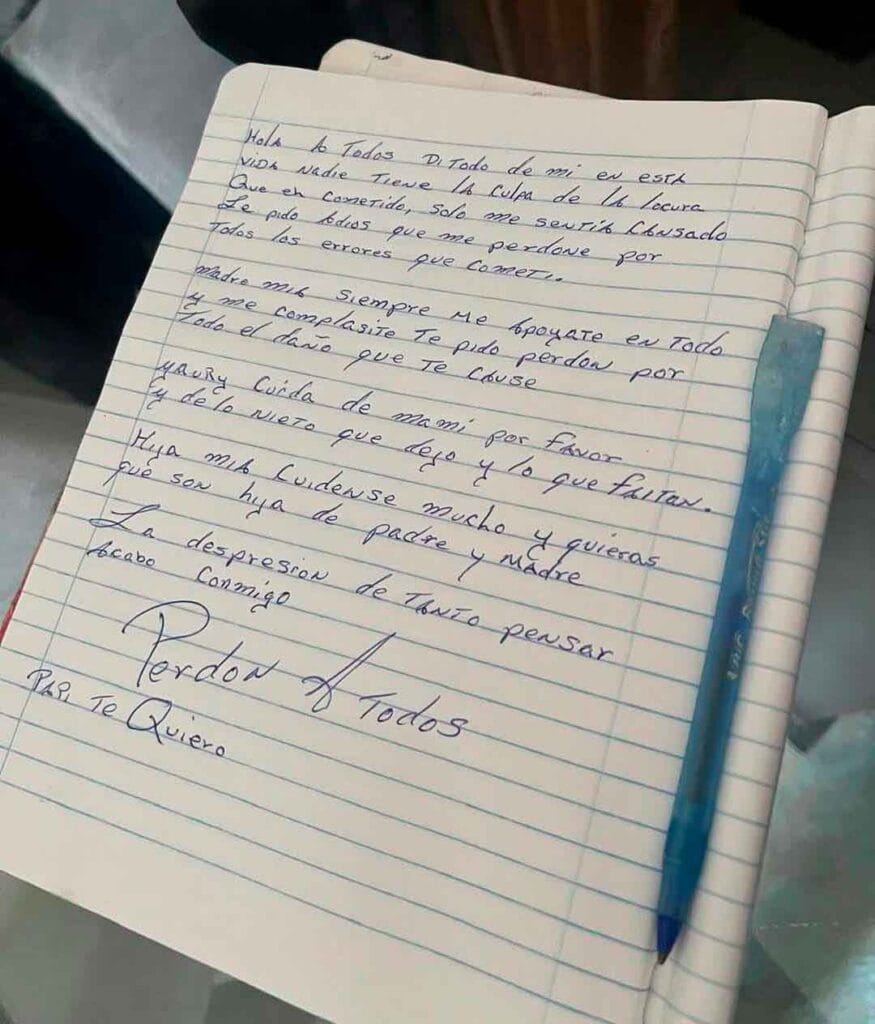 Hola A Todos Di Todo de mi en esta
vida Nadie Tiene la culpa de la locura
Que eh cometido, solo me sentia Cansado
Le pido Adios que me perdone por
Todos los errores que cometi.
Madre mia siempre me Apoyate en Todo
y me complasite Te pido perdon por
Todo el daño que Te cause
yaury Cuida de mami por favor
y de lo Nieto que dejo y lo que faltan.
Hija mia Cuidense mucho y quieras
que son hija de padre y Madre
La despresion de Tanto pensar
Acabo Conmigo
Perdon A Todos
Papi Te Quiero